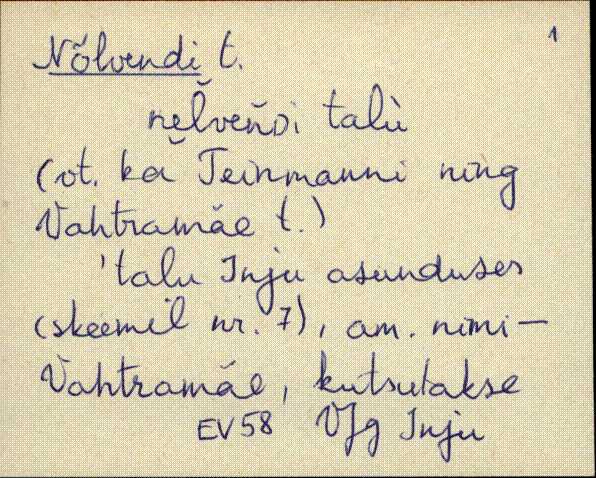 1
Nõlvendi t.
talù
(vt. ka Teinmanni ning
Vahtramäe t.)
'talu Inju asunduses
(skeemil nr. 7), am. nimi –
Vahtramäe, kutsutakse
EV 58 VJg Inju